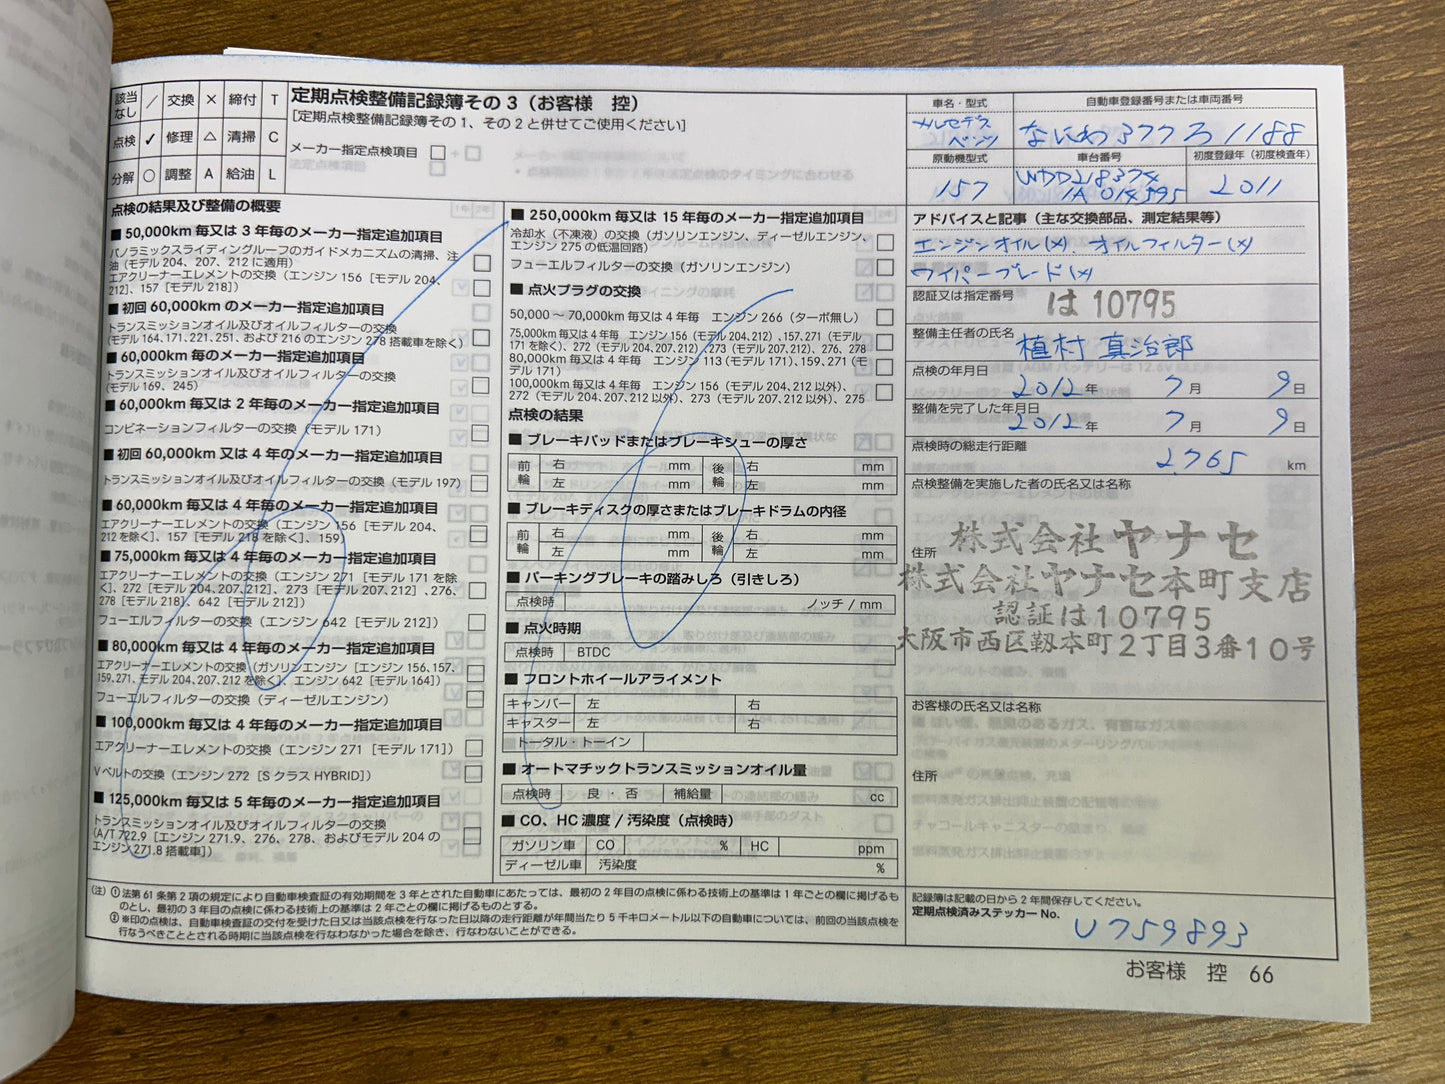 該当なし ／ 交換 × 締付 T
点検 ✓ 修理 △ 清掃 C
分解 ○ 調整 A 給油 L
定期点検整備記録簿その3（お客様　控）
［定期点検整備記録簿その1、その2と併せてご使用ください］
メーカー指定点検項目 □
点検の結果及び整備の概要
■ 50,000km 毎又は 3 年毎のメーカー指定追加項目
パノラミックスライディングルーフのガイドメカニズムの清掃、注
油（モデル 204、207、212 に適用） □
エアクリーナーエレメントの交換（エンジン 156［モデル 204、
212］、157［モデル 218］） □
■ 初回 60,000km のメーカー指定追加項目
トランスミッションオイル及びオイルフィルターの交換
（モデル 164、171、221、251、および 216 のエンジン 278 搭載車を除く） □
■ 60,000km 毎のメーカー指定追加項目
トランスミッションオイル及びオイルフィルターの交換
（モデル 169、245） □
■ 60,000km 毎又は 2 年毎のメーカー指定追加項目
コンビネーションフィルターの交換（モデル 171） □
■ 初回 60,000km 又は 4 年毎のメーカー指定追加項目
トランスミッションオイル及びオイルフィルターの交換（モデル 197） □
■ 60,000km 毎又は 4 年毎のメーカー指定追加項目
エアクリーナーエレメントの交換（エンジン 156［モデル 204、
212 を除く］、157［モデル 218 を除く］、159） □
■ 75,000km 毎又は 4 年毎のメーカー指定追加項目
エアクリーナーエレメントの交換（エンジン 271［モデル 171 を除
く］、272［モデル 204、207、212］、273［モデル 207、212］、276、
278［モデル 218］、642［モデル 212］） □
フューエルフィルターの交換（エンジン 642［モデル 212］） □
■ 80,000km 毎又は 4 年毎のメーカー指定追加項目
エアクリーナーエレメントの交換（ガソリンエンジン［エンジン 156、157、
159、271、モデル 204、207、212 を除く］、エンジン 642［モデル 164］） □
フューエルフィルターの交換（ディーゼルエンジン） □
■ 100,000km 毎又は 4 年毎のメーカー指定追加項目
エアクリーナーエレメントの交換（エンジン 271［モデル 171］） □
V ベルトの交換（エンジン 272［S クラス HYBRID］） □
■ 125,000km 毎又は 5 年毎のメーカー指定追加項目
トランスミッションオイル及びオイルフィルターの交換
（A/T 722.9［エンジン 271.9、276、278、およびモデル 204 の
エンジン 271.8 搭載車］） □
■ 250,000km 毎又は 15 年毎のメーカー指定追加項目
冷却水（不凍液）の交換（ガソリンエンジン、ディーゼルエンジン、
エンジン 275 の低温回路） □
フューエルフィルターの交換（ガソリンエンジン） □
■ 点火プラグの交換
50,000 ～70,000km 毎又は 4 年毎　エンジン 266（ターボ無し） □
75,000km 毎又は 4 年毎　エンジン 156（モデル 204、212）、157、271（モデル
171 を除く）、272（モデル 204、207、212）、273（モデル 207、212）、276、278 □
80,000km 毎又は 4 年毎　エンジン 113（モデル 171）、159、271（モ
デル 171） □
100,000km 毎又は 4 年毎　エンジン 156（モデル 204、212 以外）、
272（モデル 204、207、212 以外）、273（モデル 207、212 以外）、275 □
点検の結果
■ ブレーキパッドまたはブレーキシューの厚さ
前輪 右 mm 後輪 右 mm
左 mm 左 mm
■ ブレーキディスクの厚さまたはブレーキドラムの内径
前輪 右 mm 後輪 右 mm
左 mm 左 mm
■ パーキングブレーキの踏みしろ（引きしろ）
点検時 ノッチ / mm
■ 点火時期
点検時 BTDC
■ フロントホイールアライメント
キャンバー 左 右
キャスター 左 右
トータル・トーイン
■ オートマチックトランスミッションオイル量
点検時 良 ・ 否 補給量 cc
■ CO、HC 濃度 / 汚染度（点検時）
ガソリン車 CO % HC ppm
ディーゼル車 汚染度 %
（注）① 法第 61 条第 2 項の規定により自動車検査証の有効期間を 3 年とされた自動車にあたっては、最初の 2 年目の点検に係わる技術上の基準は 1 年ごとの欄に掲げるも
のとし、最初の 3 年目の点検に係わる技術上の基準は 2 年ごとの欄に掲げるものとする。
② ※印の点検は、自動車検査証の交付を受けた日又は当該点検を行なった日以降の走行距離が年間当たり 5 千キロメートル以下の自動車については、前回の当該点検を
行なうべきこととされる時期に当該点検を行なわなかった場合を除き、行なわないことができる。
車名・型式
メルセデス
ベンツ
自動車登録番号または車両番号
なにわ377ろ1188
原動機型式
157
車台番号
WDD218374
1A 014595
初度登録年（初度検査年）
2011
アドバイスと記事（主な交換部品、測定結果等）
エンジンオイル(×)　オイルフィルター(×)
ワイパーブレード(×)
認証又は指定番号 は 10795
整備主任者の氏名 植村 真治郎
点検の年月日
2012 年 7 月 9 日
整備を完了した年月日
2012 年 7 月 9 日
点検時の総走行距離
2,765 km
点検整備を実施した者の氏名又は名称
株式会社ヤナセ
住所
株式会社ヤナセ本町支店
認証は10795
大阪市西区靱本町2丁目3番10号
お客様の氏名又は名称
住所
記録簿は記載の日から 2 年間保存してください。
定期点検済みステッカー No.
U759893
お客様　控　66